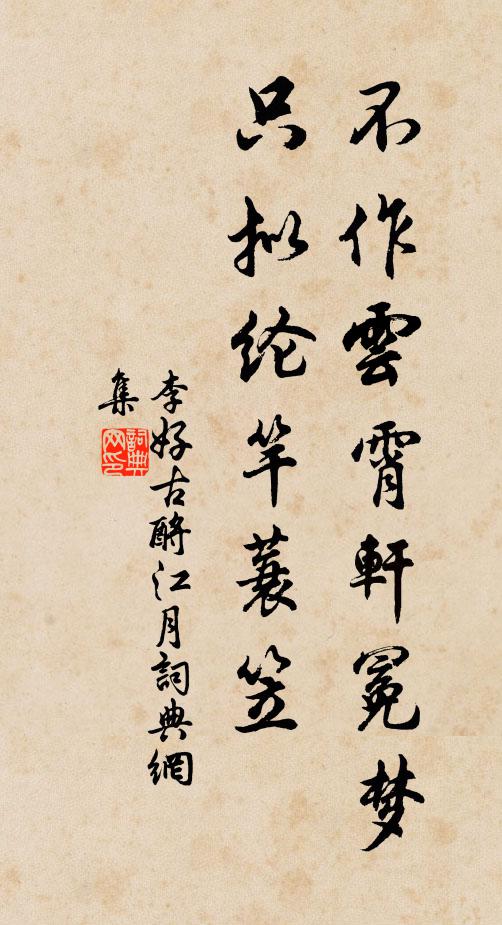 不作雲霄軒冕梦
只拟纶竿蓑笠
李好古酹江月詞典網
集
詞典网印